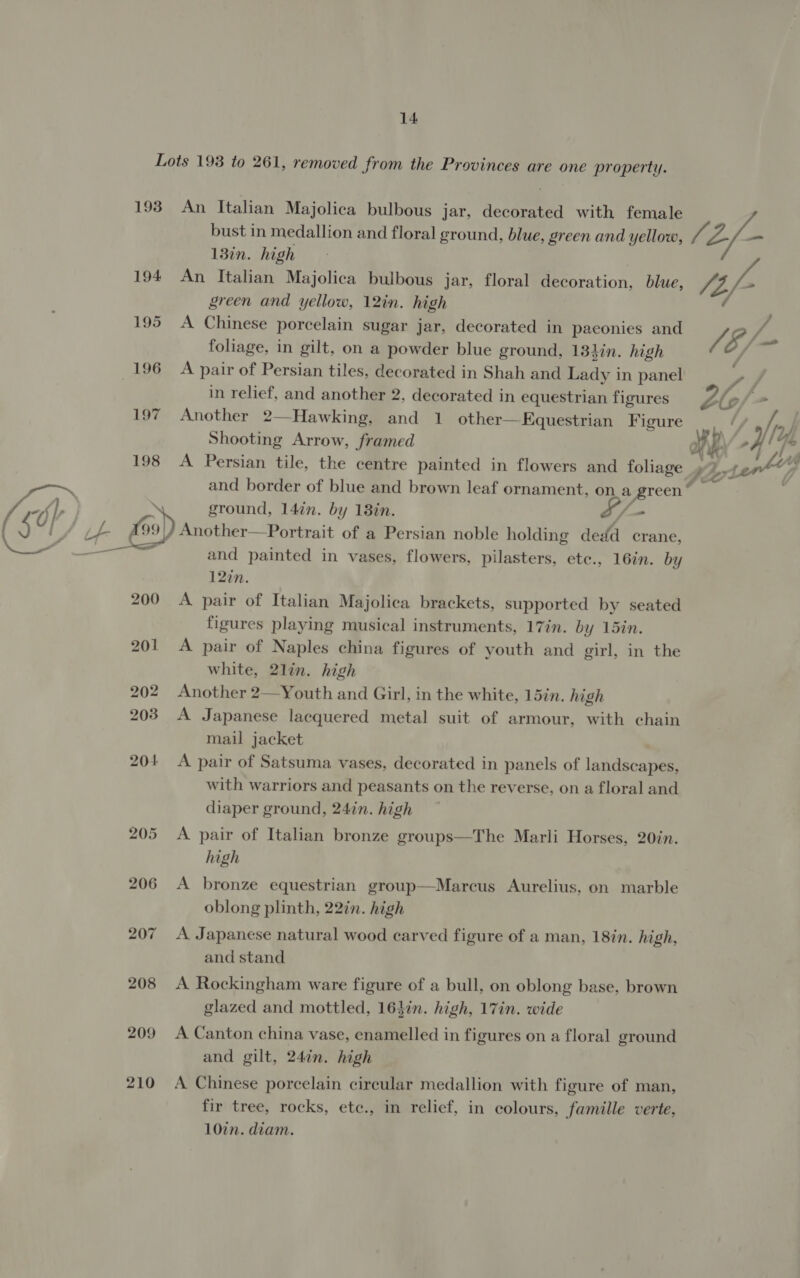 14
Lots 193 to 261, removed from the Provinces are one property.
193 An Italian Majolica bulbous jar, decorated with female
bust in medallion and floral ground, blue, green and yellow, 12/-
13in. high
194 An Italian Majolica bulbous jar, floral decoration, blue,
green and yellow, 12in. high
195 A Chinese porcelain sugar jar, decorated in paeonies and
foliage, in gilt, on a powder blue ground, 13½in. high
196 A pair of Persian tiles, decorated in Shah and Lady in panel
in relief, and another 2, decorated in equestrian figures
197 Another 2—Hawking, and 1 other—Equestrian Figure
Shooting Arrow, framed
198 A Persian tile, the centre painted in flowers and foliage
and border of blue and brown leaf ornament, on a green
ground, 14in. by 13in.
199 Another—Portrait of a Persian noble holding dead crane,
and painted in vases, flowers, pilasters, etc., 16in. by
12in.
200 A pair of Italian Majolica brackets, supported by seated
figures playing musical instruments, 17in. by 15in.
201 A pair of Naples china figures of youth and girl, in the
white, 21in. high
202 Another 2—Youth and Girl, in the white, 15in. high
203 A Japanese lacquered metal suit of armour, with chain
mail jacket
204 A pair of Satsuma vases, decorated in panels of landscapes,
with warriors and peasants on the reverse, on a floral and
diaper ground, 24in. high
205 A pair of Italian bronze groups—The Marli Horses, 20in.
high
206 A bronze equestrian group—Marcus Aurelius, on marble
oblong plinth, 22in. high
207 A Japanese natural wood carved figure of a man, 18in. high,
and stand
208 A Rockingham ware figure of a bull, on oblong base, brown
glazed and mottled, 16½in. high, 17in. wide
209 A Canton china vase, enamelled in figures on a floral ground
and gilt, 24in. high
210 A Chinese porcelain circular medallion with figure of man,
fir tree, rocks, etc., in relief, in colours, famille verte,
10in. diam.